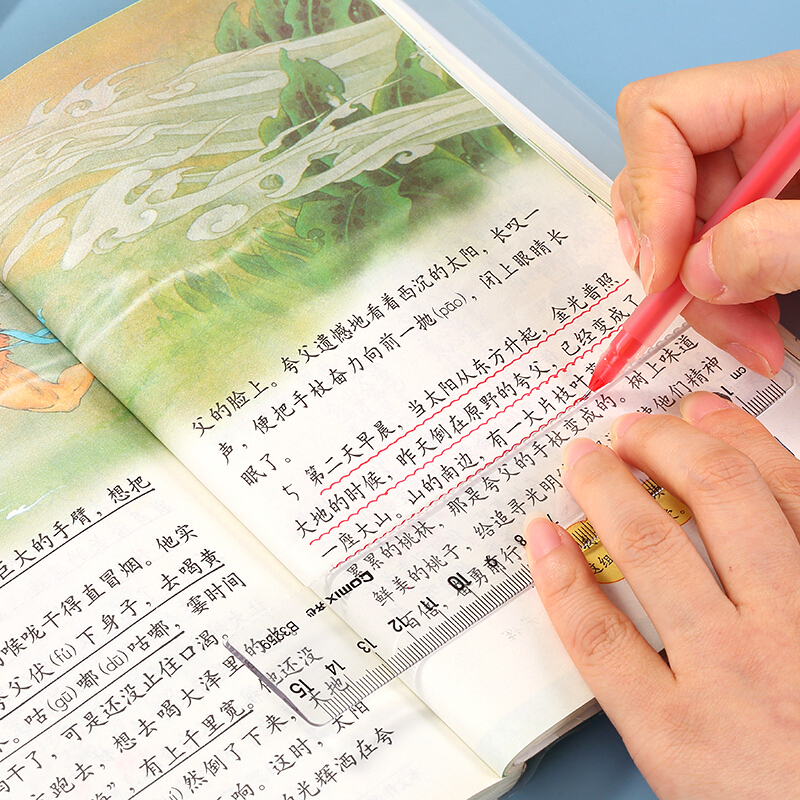 巨大的手臂，想把
喉咙干得直冒烟。他实
夸父伏(fú)下身子，去喝黄
咕(gū)嘟(dū)咕嘟，霎时间
干了，可是还没止住口渴。
跑去，想去喝大泽里的水
”，有上千里宽。他还没
然倒了下来，大地
响。这时，太阳
光辉洒在夸
父的脸上。夸父遗憾地看着西沉的太阳，长叹一
声，便把手杖奋力向前一抛(pāo)，闭上眼睛长
眠了。
5 第二天早晨，当太阳从东方升起，金光普照
大地的时候，昨天倒在原野的夸父，已经变成了
一座大山。山的南边，有一大片枝叶
累累的桃林，那是夸父的手杖变成的。树上味道
鲜美的桃子，给追寻光明 他们精神
百倍，奋勇前行
Comix 齐心
B3259
cm
1
7
8
9
10
11
12
13
14
15